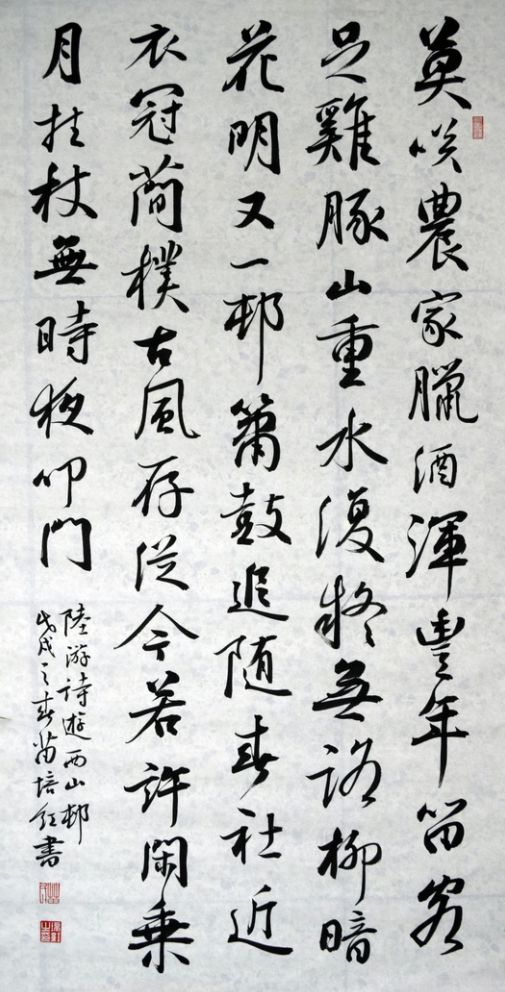 莫咲農家臘酒渾豐年留客
足雞豚山重水複疑無路柳暗
花明又一邨簫鼓追随春社近
衣冠簡樸古風存從今若許閑乗
月拄杖無時夜叩門
陸游詩遊西山邨
戊戌之春苗培紅書